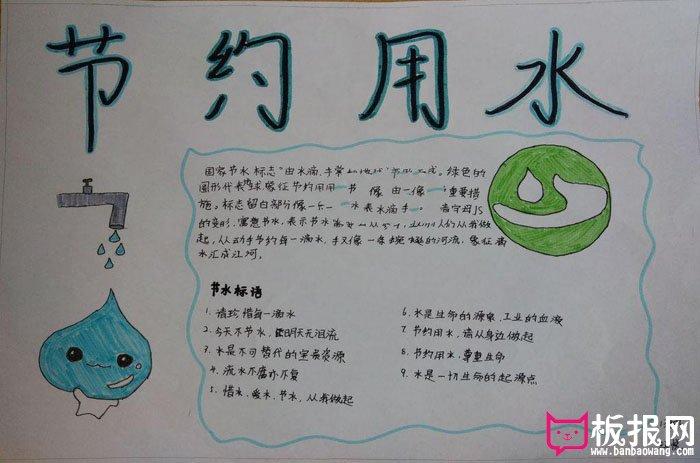 节约用水
国家节水标志"由水滴,手掌
绿色的
圆形代表地球,象征节约用用
节
像
由一像
重要措
施。标志留白部分像一
水表水滴手
者字母JS
的变形,寓意节水,表示节水
人们从我做
起,从动手节约每一滴水,手又像一条蜿蜒的河流,象征滴
水汇成江河。
节水标语
1. 请珍惜每一滴水
2. 今天不节水,明天无泪流
3. 水是不可替代的宝贵资源
4. 流水不腐亦不复
5. 惜水、爱水、节水,从我做起
6. 水是生命的源泉,工业的血液
7. 节约用水,请从身边做起
8. 节约用水,尊重生命
9. 水是一切生命的起源点
板报网
www.banbaowang.com